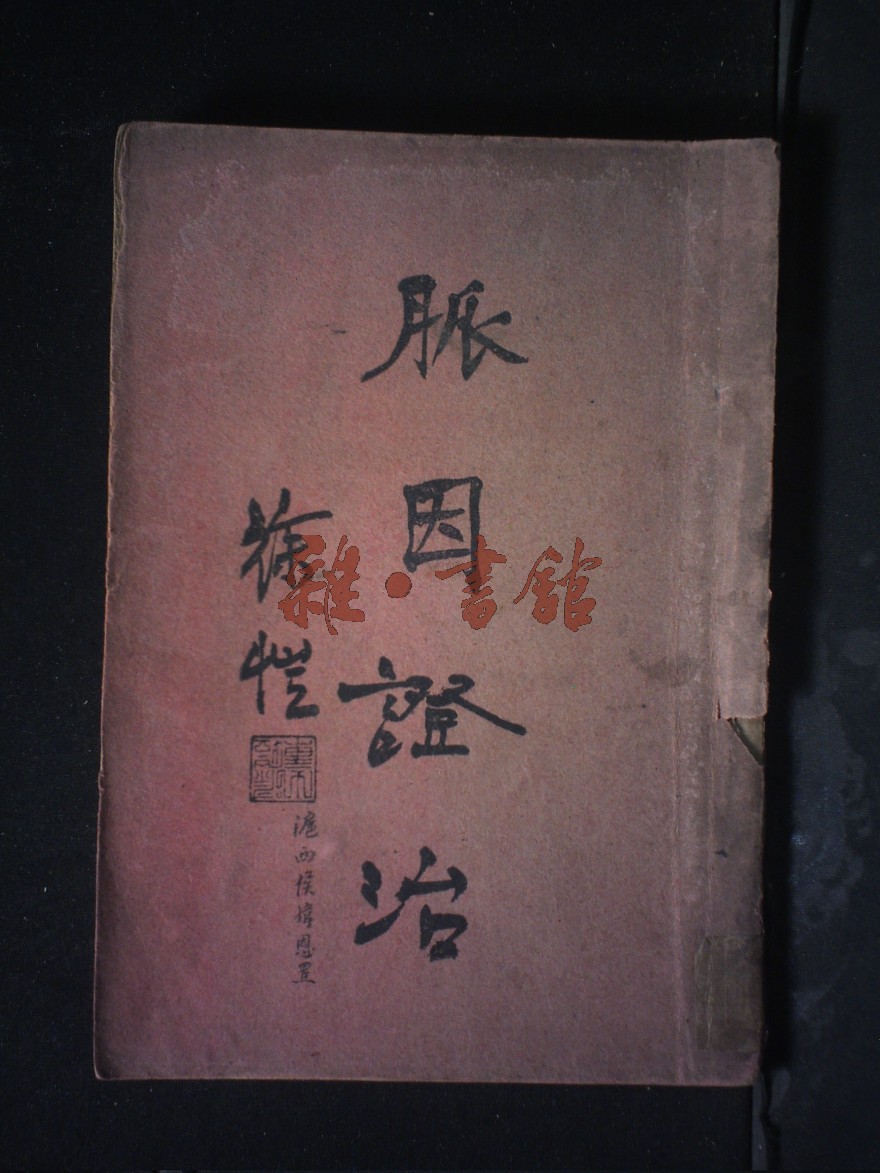 脈因證治
徐愷
滬西侯偉恩置
雜·書館